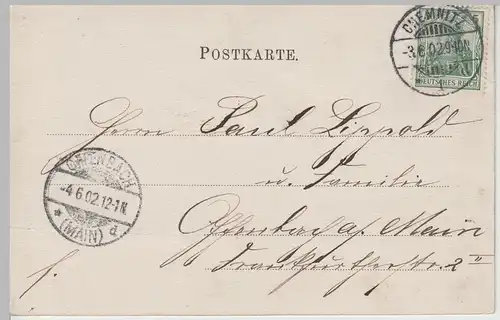 POSTKARTE.
CHEMNITZ
-3.6.02.9-10N.
1
DEUTSCHES REICH
Herrn Paul Lippold
u. Familie
OFFENBACH
-4.6.02.12-1N.
* (MAIN) d
Offenbach a/ Main
Frankfurtherstr. 2 II
f.